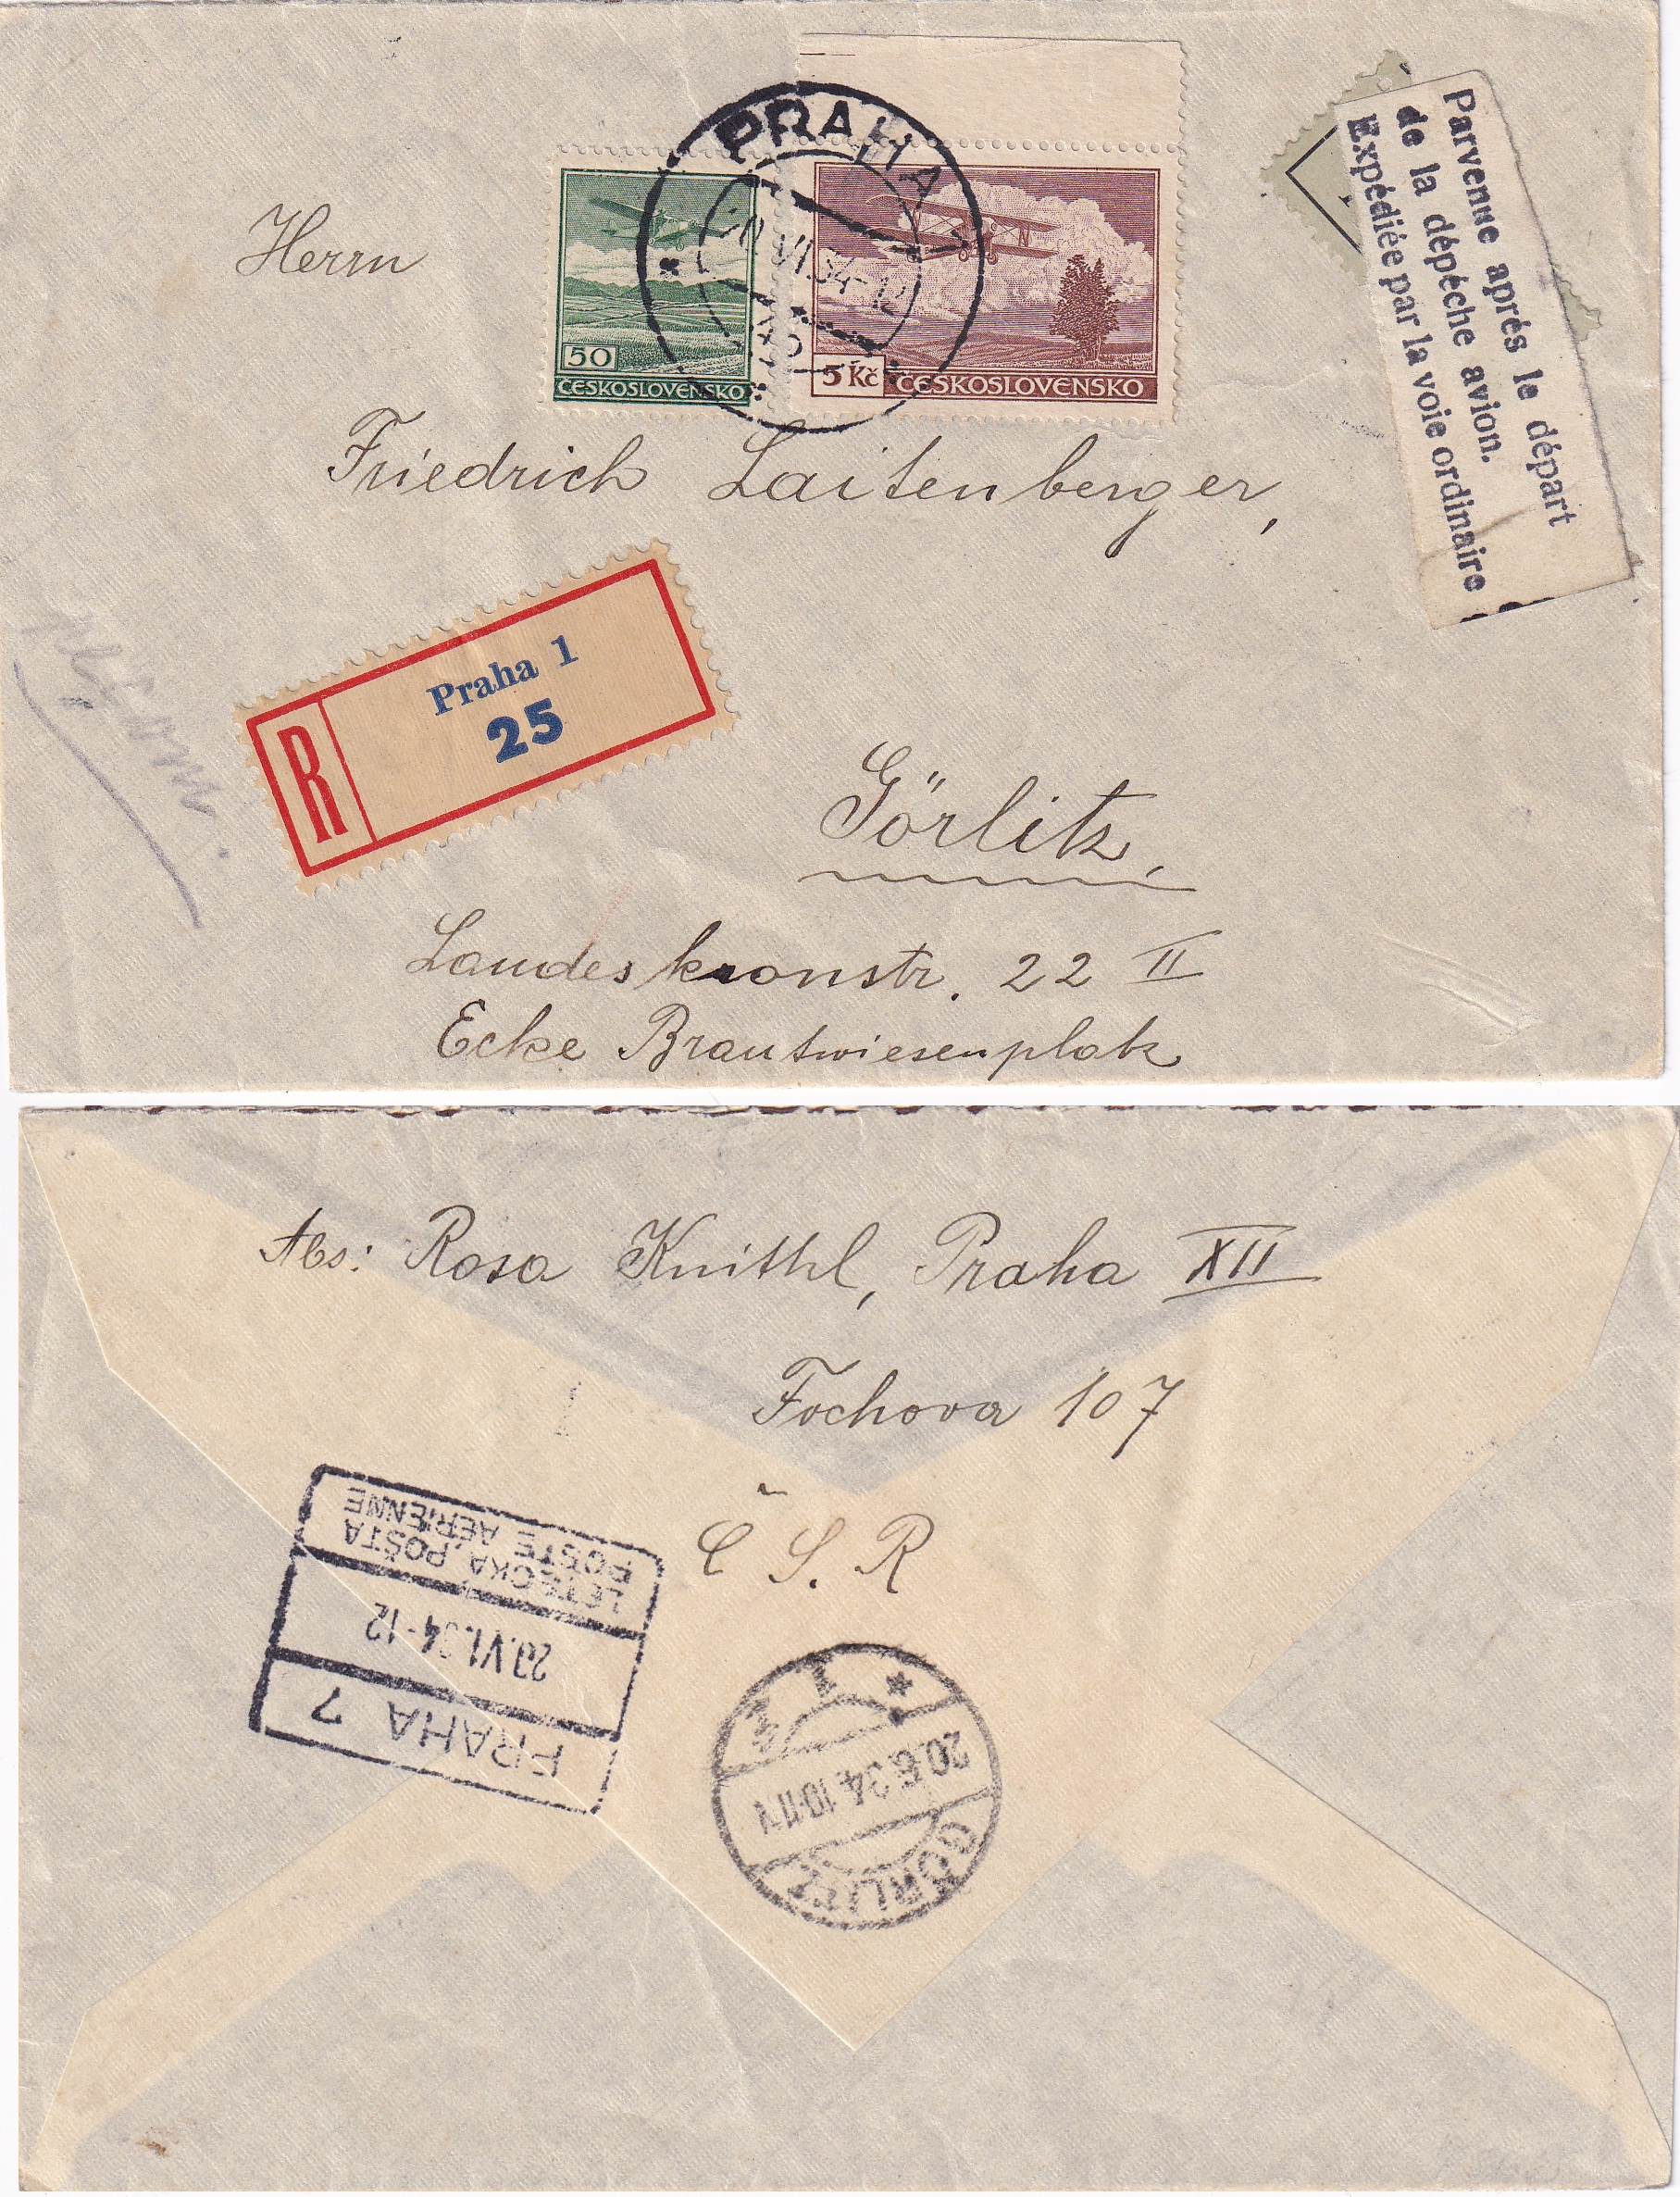 PRAHA 1
VI.34-12
50
ČESKOSLOVENSKO
5 Kč ČESKOSLOVENSKO
Parvenue aprés le départ
de la dépéche avion.
Expédiée par la voie ordinaire
Herrn
Friedrich Laitenberger,
R Praha 1
25
Görlitz,
Landeskronstr. 22 II
Ecke Brautwiesenplatz
Abs: Rosa Knithl, Praha XII
Fochova 107
Č S. R
PRAHA 7
20.VI.34-12
LETECKÁ POŠTA
POSTE AÉRIENNE
GÖRLITZ
20.6.34.10-11V
* 1